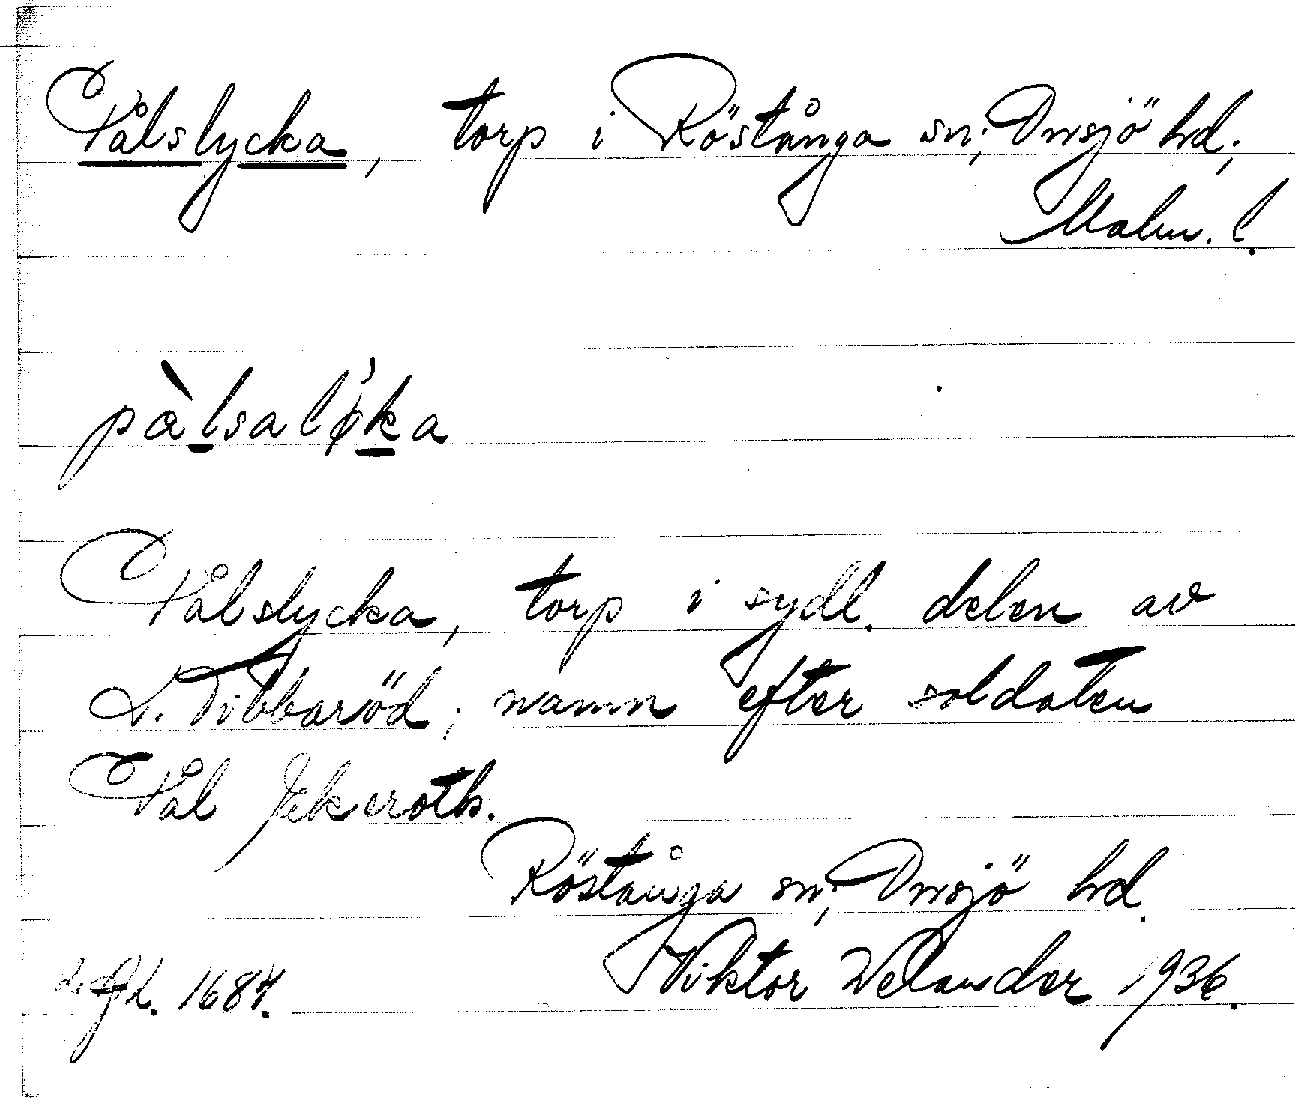 Pålslycka, torp i Röstånga sn; Onsjö hd;
Malm. l.
pàlsaløka
Pålslycka, torp i sydl. delen av
L. Tibbaröd; namn efter soldaten
Pål Ekeroth.
Röstånga sn; Onsjö hd.
1687. Viktor Welander 1936.